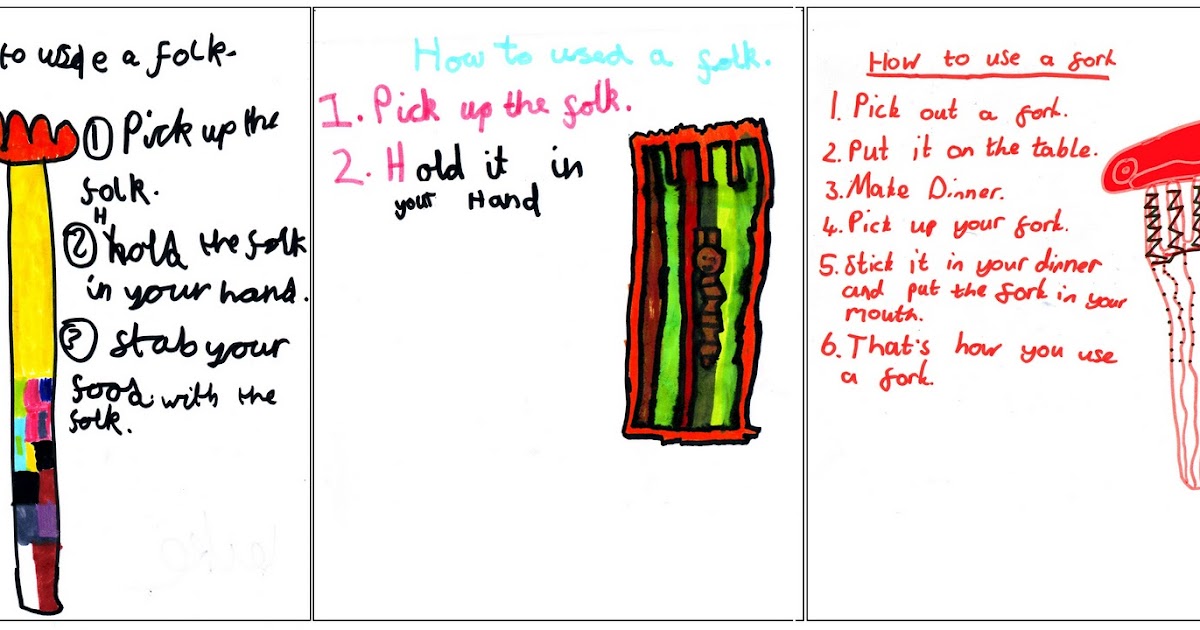 to use a folk.
① Pick up the
folk.
H
② hold the folk
in your hand.
③ stab your
food with the
folk.
How to used a folk.
1. Pick up the folk.
2. Hold it in
your Hand
How to use a fork
1. Pick out a fork.
2. Put it on the table.
3. Make Dinner.
4. Pick up your fork.
5. Stick it in your dinner
and put the fork in your
mouth.
6. That's how you use
a fork.